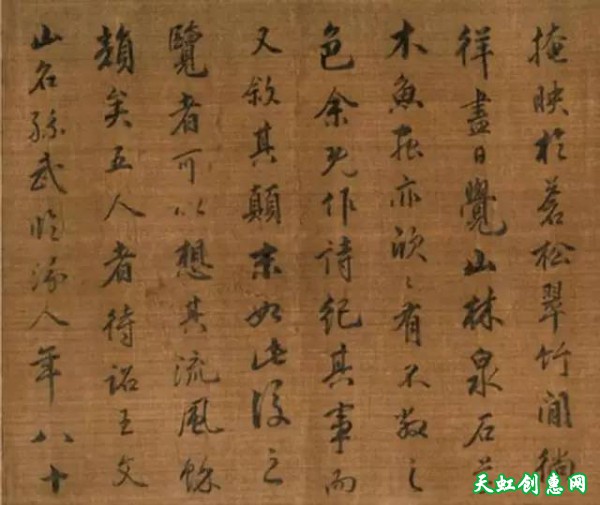 掩映於蒼松翠竹間徜
徉盡日覺山林泉石草
木魚亦欣〻有不之
色余既作詩紀其事而
又敘其顛末如此後之
覽者可以想其流風餘
韻矣五人者待詔王文
山名孫武臨海人年八十
天虹创惠网